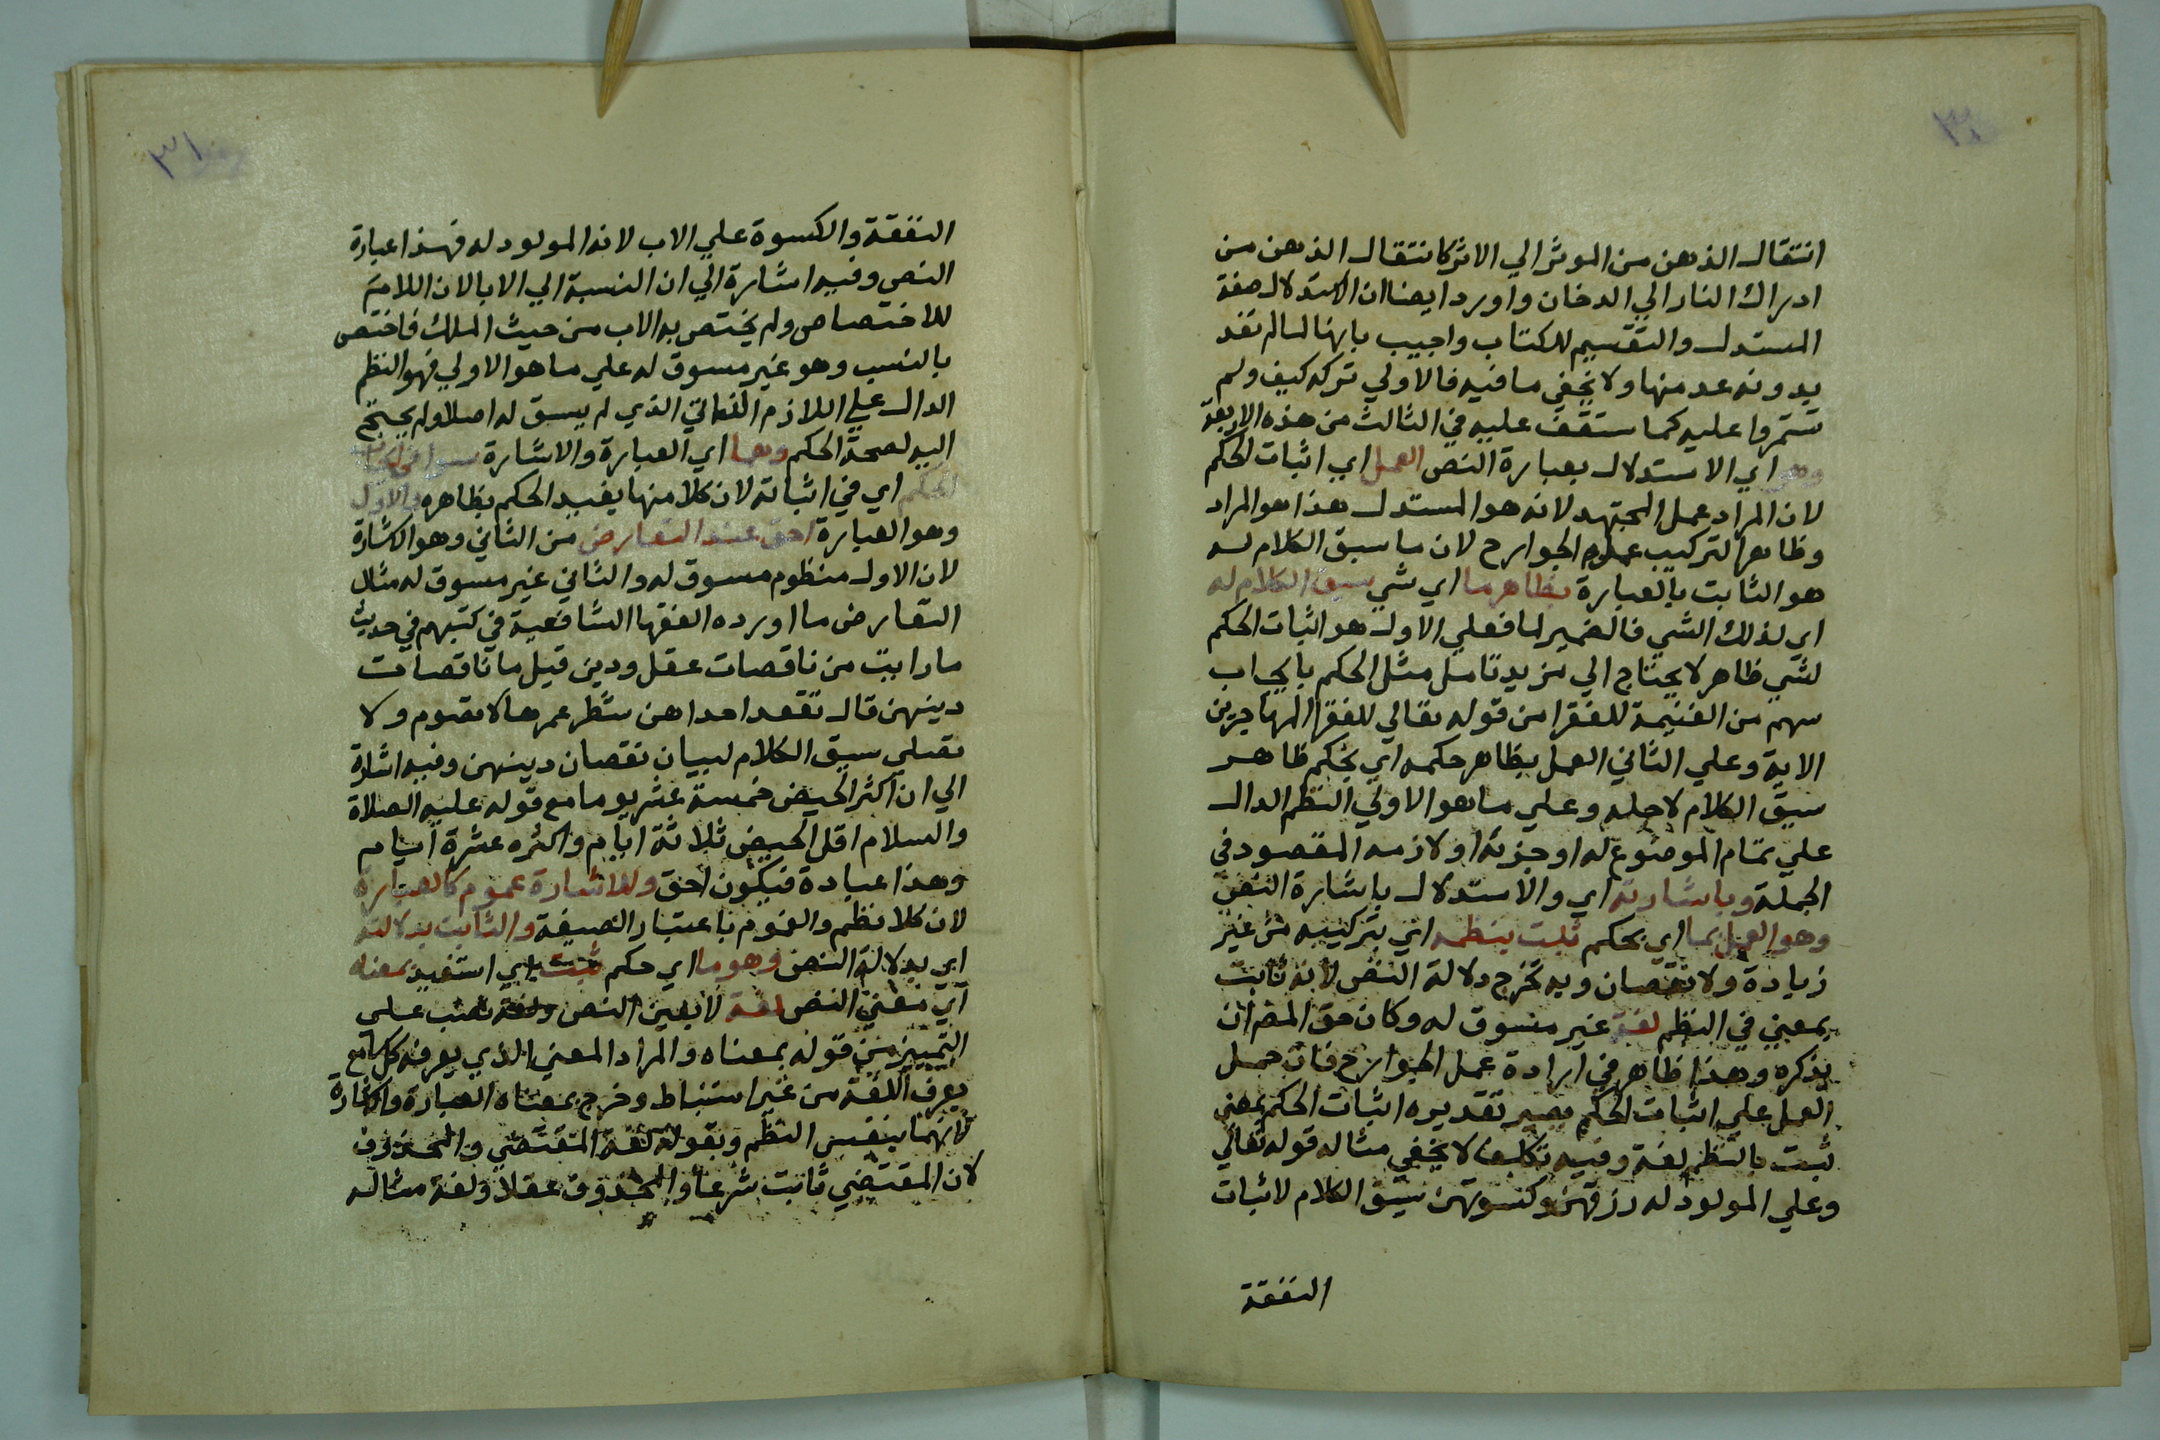 ٣٠
انتقال الذهن من الموثر الي الاثر كانتقال الذهن من
ادراك النار الي الدخان واورد ايضا ان الاستدلال صفة
المستدل والتقسيم للكتاب واجيب بانها لما لم تفد
بدونه عد منها ولا يخفي ما فيه فالاولي تركه كيف ولم
يستمروا عليه كما ستقف عليه في الثالث من هذه الاربعة
وهو اي الاستدلال بعبارة النص العمل اي اثبات الحكم
لان المراد عمل المجتهد لانه هو المستدل هذا هو المراد
وظاهر التركيب عمل الجوارح لان ما سيق الكلام له
هو الثابت بالعبارة بظاهر ما اي شي سيق الكلام له
اي لذلك الشي فالضمير لما فعلي الاول هو اثبات الحكم
لشي ظاهر لا يحتاج الي مزيد تامل مثل الحكم بايجاب
سهم من الغنيمة للفقرا من قوله تعالي للفقرا المهاجرين
الاية وعلي الثاني العمل بظاهر حكمه اي بحكم ظاهر
سيق الكلام لاجله وعلي ما هو الاولي النظم الدال
علي تمام الموضوع له او جزئه او لازمه المقصود في
الجملة وباشارته اي والاستدلال باشارة النص
وهو العمل بما اي بحكم ثبت بنظمه اي بتركيبه من غير
زيادة ولا نقصان وبه تخرج دلالة النص لانه ثابت
بمعني في النظم لغة غير مسوق له وكان حق المص ان
يذكره وهذا ظاهر في ارادة عمل الجوارح فان حمل
العمل علي اثبات الحكم يصير تقديره اثبات الحكم بمعني
ثبت بالنظم لغة وفيه تكلف لا يخفي مثاله قوله تعالي
وعلي المولود له رزقهن وكسوتهن سيق الكلام لاثبات
النفقة
٣١
النفقة والكسوة علي الاب لانه المولود له فهذا عبارة
النص وفيه اشارة الي ان النسبة الي الاب الان اللام
للاختصاص ولم يختص به الاب من حيث الملك فاختص
بالنسب وهو غير مسوق له علي ما هو الاولي فهو النظم
الدال علي اللازم الذي لم يسق له اصلا ولم يحتج
اليه لصحة الحكم وهما اي العبارة والاشارة سوا في ايجاب
الحكم اي في اثباته لان كلا منها يفيد الحكم بظاهره والاول
وهو العبارة احق عند التعارض من الثاني وهو الاشارة
لان الاول منظوم مسوق له والثاني غير مسوق له مثال
التعارض ما اورده الفقها الشافعية في كتبهم في حديث
ما رايت من ناقصات عقل ودين قيل ما ناقصات
دينهن قال تقعد احداهن شطر عمرها لا تصوم ولا
تصلي سيق الكلام لبيان نقصان دينهن وفيه اشارة
الي ان اكثر الحيض خمسة عشر يوما مع قوله عليه الصلاة
والسلام اقل الحيض ثلاثة ايام واكثره عشرة ايام
وهذا عبارة فيكون احق وللاشارة عموم كالعبارة
لان كلا نظم والعموم باعتبار الصيغة والثابت بدلالته
اي بدلالة النص وهو ما اي حكم ثبت اي استفيد بمعناه
اي بمعني النص لغة لا بعين النص ولغة نصب علي
التمييز من قوله بمعناه والمراد المعني الذي يعرفه كل سامع
يعرف اللغة من غير استنباط وخرج بمعناه العبارة والاشارة
فانهما بنفس النظم وبقوله لغة المقتضي والمحذوف
لان المقتضي ثابت شرعا والمحذوف عقلا ولغة مثاله